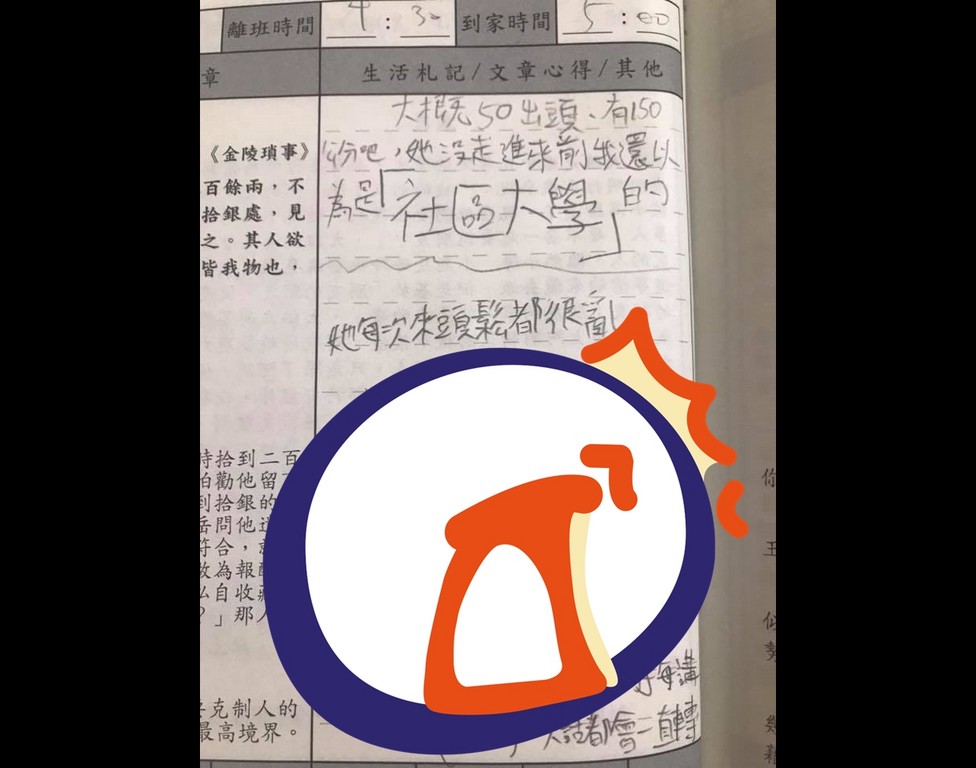 離班時間 4:30 到家時間 5:00
章 生活札記/文章心得/其他
大概50出頭、有150
公分吧，她沒走進來前我還以
為是「社區大學」的
她每次來頭鬆都很亂
《金陵瑣事》
百餘兩，不
拾銀處，見
之。其人欲
皆我物也，
時拾到二百
怕勸他留
到拾銀的
岳問他
符合，
做為報
私自收
？」那人
克制人的
最高境界。
每講
話都會一直轉
你
王